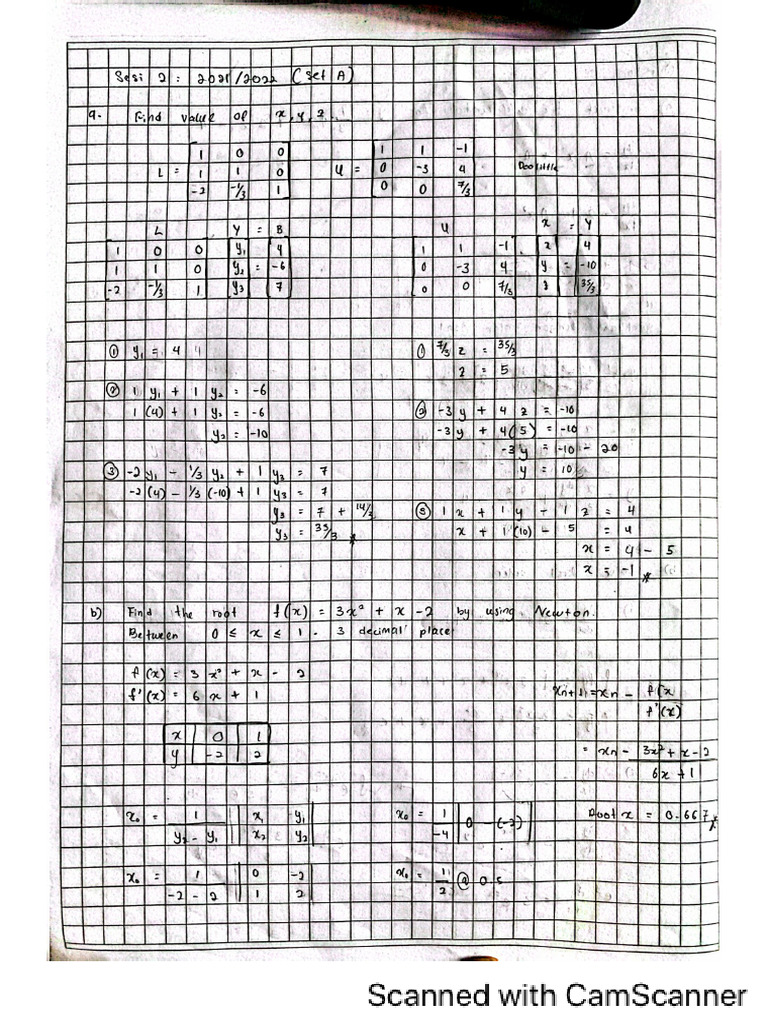 Sesi 2 : 2021/2022 (Set A)
a. Find value of x, y, z.
L = [1 0 0; 1 1 0; -2 -1/3 1] U = [1 1 -1; 0 -3 4; 0 0 7/3] Doolittle
L Y = B
[1 0 0; 1 1 0; -2 -1/3 1] [y₁; y₂; y₃] = [4; -6; 7]
U X = Y
[1 1 -1; 0 -3 4; 0 0 7/3] [x; y; z] = [4; -10; 35/3]
① y₁ = 4
② 1 y₁ + 1 y₂ = -6
1 (4) + 1 y₂ = -6
y₂ = -10
③ -2y₁ - 1/3 y₂ + 1 y₃ = 7
-2(4) - 1/3 (-10) + 1 y₃ = 7
y₃ = 7 + 14/3
y₃ = 35/3
① 7/3 z = 35/3
z = 5
② -3y + 4 z = -10
-3y + 4(5) = -10
-3y = -10 - 20
y = 10
③ 1x + 1y - 1 z = 4
x + 1(10) - 5 = 4
x = 4 - 5
x = -1
b) Find the root f(x) = 3x² + x - 2 by using Newton.
Between 0 ≤ x ≤ 1. 3 decimal place
f(x) = 3x² + x - 2
f'(x) = 6x + 1
x 0 1
y -2 2
xn+1 = xn - f(x
f'(x)
= xn - 3x² + x - 2
6x + 1
x₀ = 1/(y₂ - y₁) || x₁ -y₁; x₂ y₂ |
x₀ = 1/(-2 - 2) || 0 -2; 1 2 |
x₀ = 1/-4 | 0 - (-2) |
x₀ = 1/2 @ 0.5
Root x = 0.667
Scanned with CamScanner